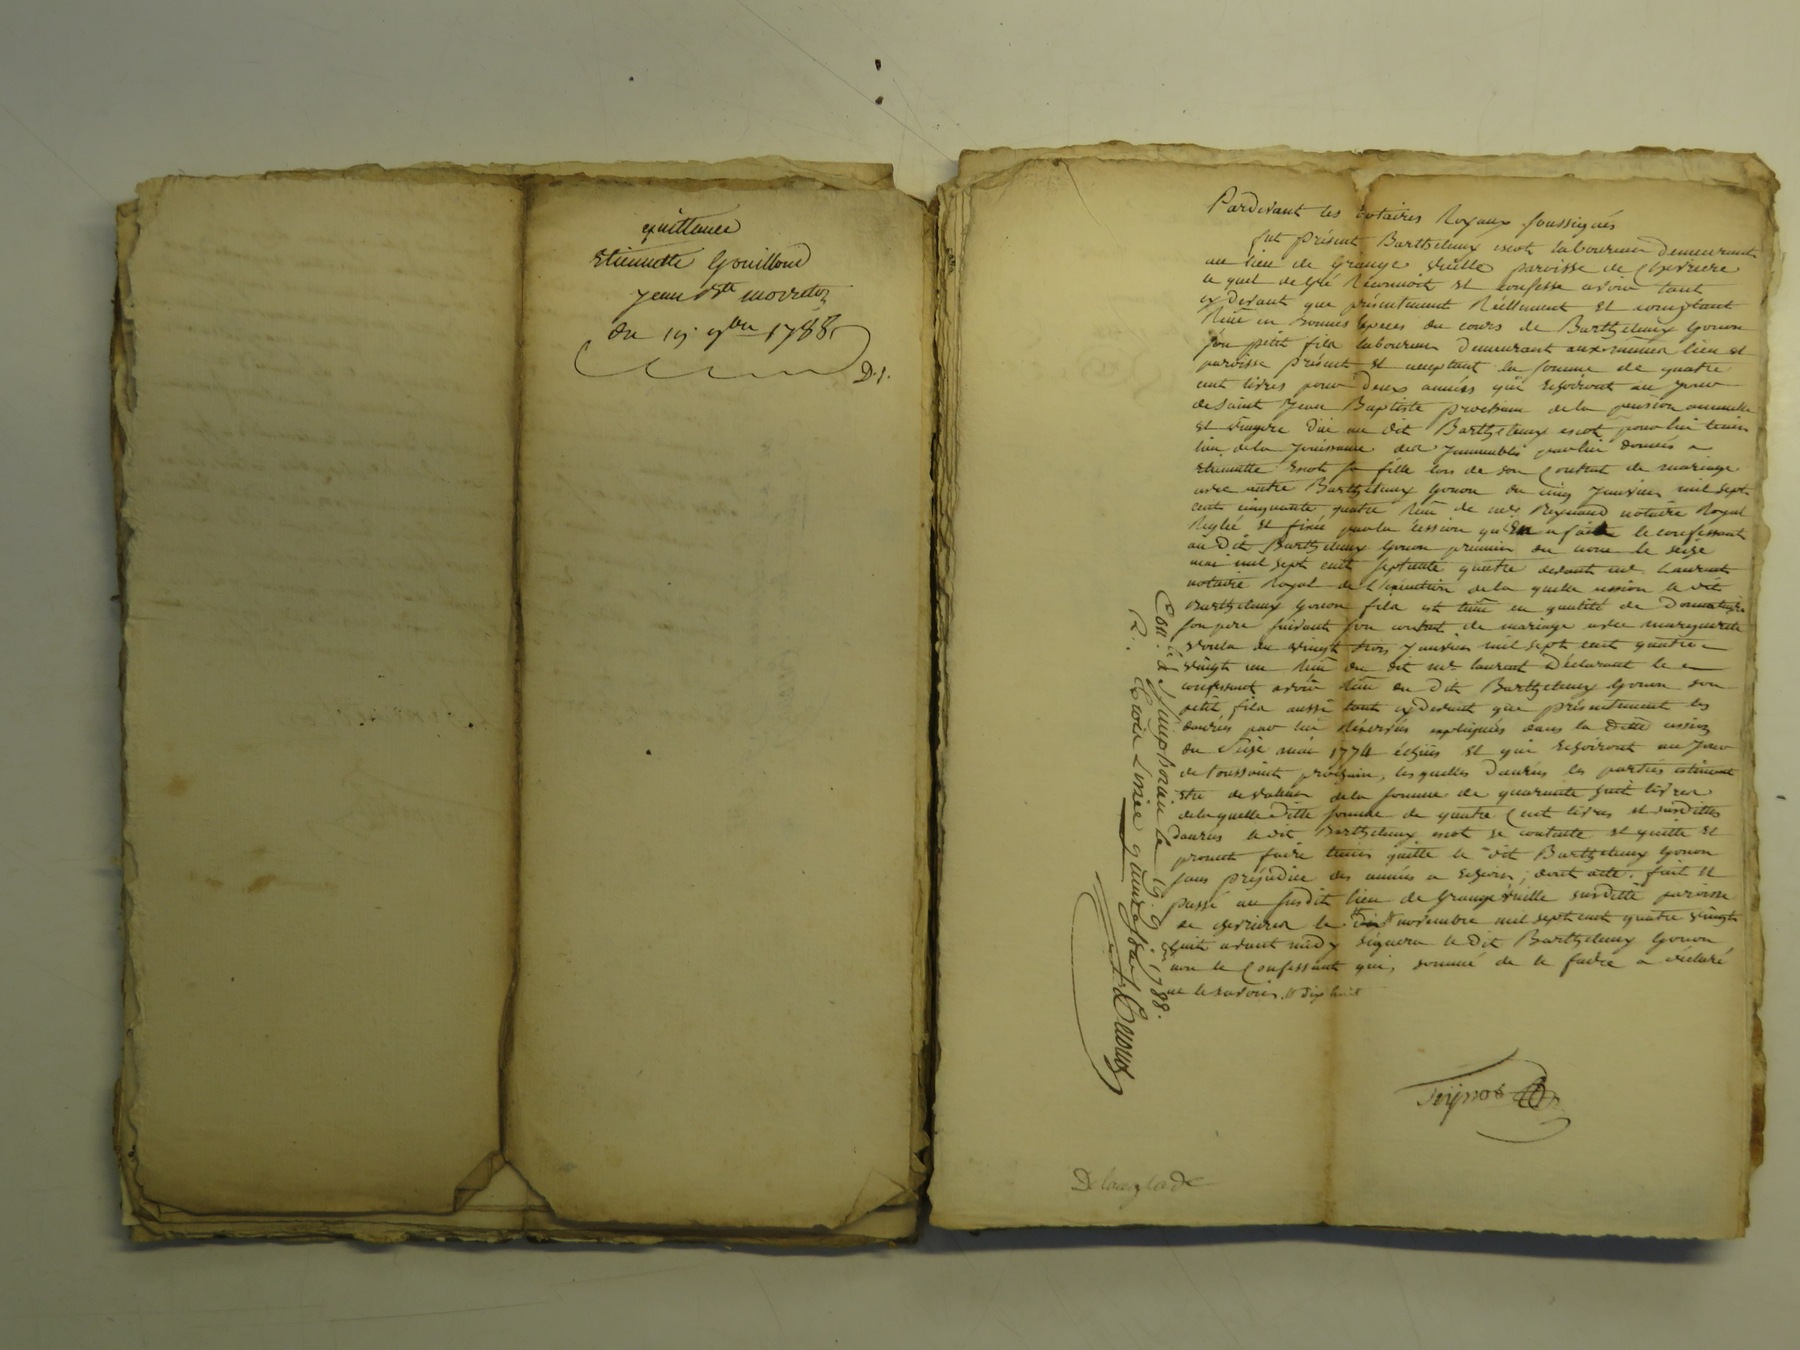 quittance
Etiennette Gouilloud
Jean Bte moretton
du 19 9bre 1788
D. 1.
Pardevant les notaires Royaux soussignés
fut présent Barthelemy escot laboureur demeurant
au lieu de Grange vieille paroisse de Chevriere
le quel de gré Reconnoit et confesse avoir tant
cy devant que présentement Réellement et comptant
Reçu en bonnes Especes du cours de Barthelemy Gonon
son petit fils laboureur demeurant aux mêmes lieu et
paroisse présent et acceptant la somme de quatre
cent livres pour deux années qui Echoiront au jour
de saint Jean Baptiste prochain de la pension annuelle
et viagere due au dit Barthelemy escot pour lui tenir
lieu de la Jouissance des Jmmeubles par lui donnés a
etiennette Escot sa fille lors de son Contrat de mariage
avec autre Barthelemy Gonon du cinq Janvier mil sept
cent cinquante quatre Reçu de me Reynaud notaire Royal
Reglée et fixée par la cession qu'En a faitte le confessant
au dit Barthelemy Gonon premier du nom le seize
mai mil sept cent septante quatre devant me Laurent
notaire Royal de l'exécution de la quelle cession le dit
Barthelemy Gonon fils est tenu en qualité de Donataire
son pere suivant son contrat de mariage avec marguerite
du vingt trois Janvier mil sept cent quatre
vingt un Reçu du dit me laurent Déclarant le
confessant avoir Reçu du dit Barthelemy Gonon son
petit fils aussi tant cy devant que présentement les
danrées par lui Réservées expliquées dans la ditte cession
du Seize mai 1774 échues et qui Echoiront au jour
de toussaint prochain, les quelles danrées les parties estiment
etre de valeur de la somme de quarante huit livres
de laquelle ditte somme de quatre Cent livres et susdittes
danrées le dit Barthelemy escot se contente et quitte et
promet faire tenir quitte le dit Barthelemy Gonon
sans préjudice des années a Echoir, dont acte. fait et
passé au susdit lieu de Grangevieille susditte paroisse
de chevrieres le novembre mil sept cent quatre vingt
huit avant midy signera le dit Barthelemy Gonon
non le Confessant qui, sommé de le faire a déclaré
ne le savoir. # dix huit
Con. à St Simphorien le 19 9bre 1788.
R. trois Livres
Delanglade